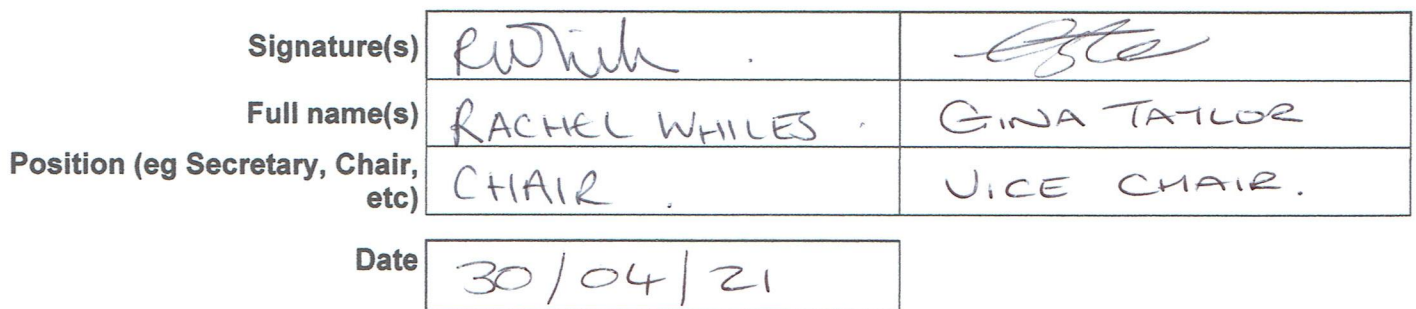 Signature(s)
Full name(s) RACHEL WHILES GINA TAYLOR
Position (eg Secretary, Chair,
etc) CHAIR VICE CHAIR.
Date 30/04/21